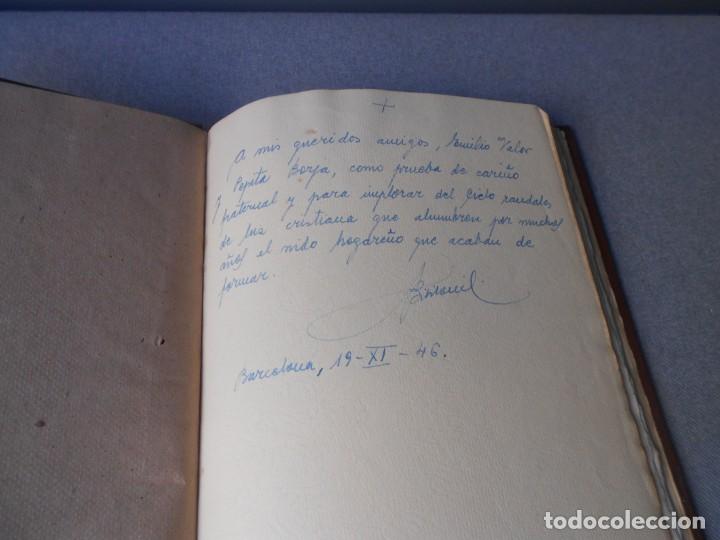 +
A mis queridos amigos, Emilio Valor
y Pepita Borja, como prueba de cariño
paternal y para implorar del Cielo raudales
de luz cristiana que alumbren por muchos
años el nido hogareño que acaban de
formar.
Barcelona, 19-XI-46.
todocoleccion